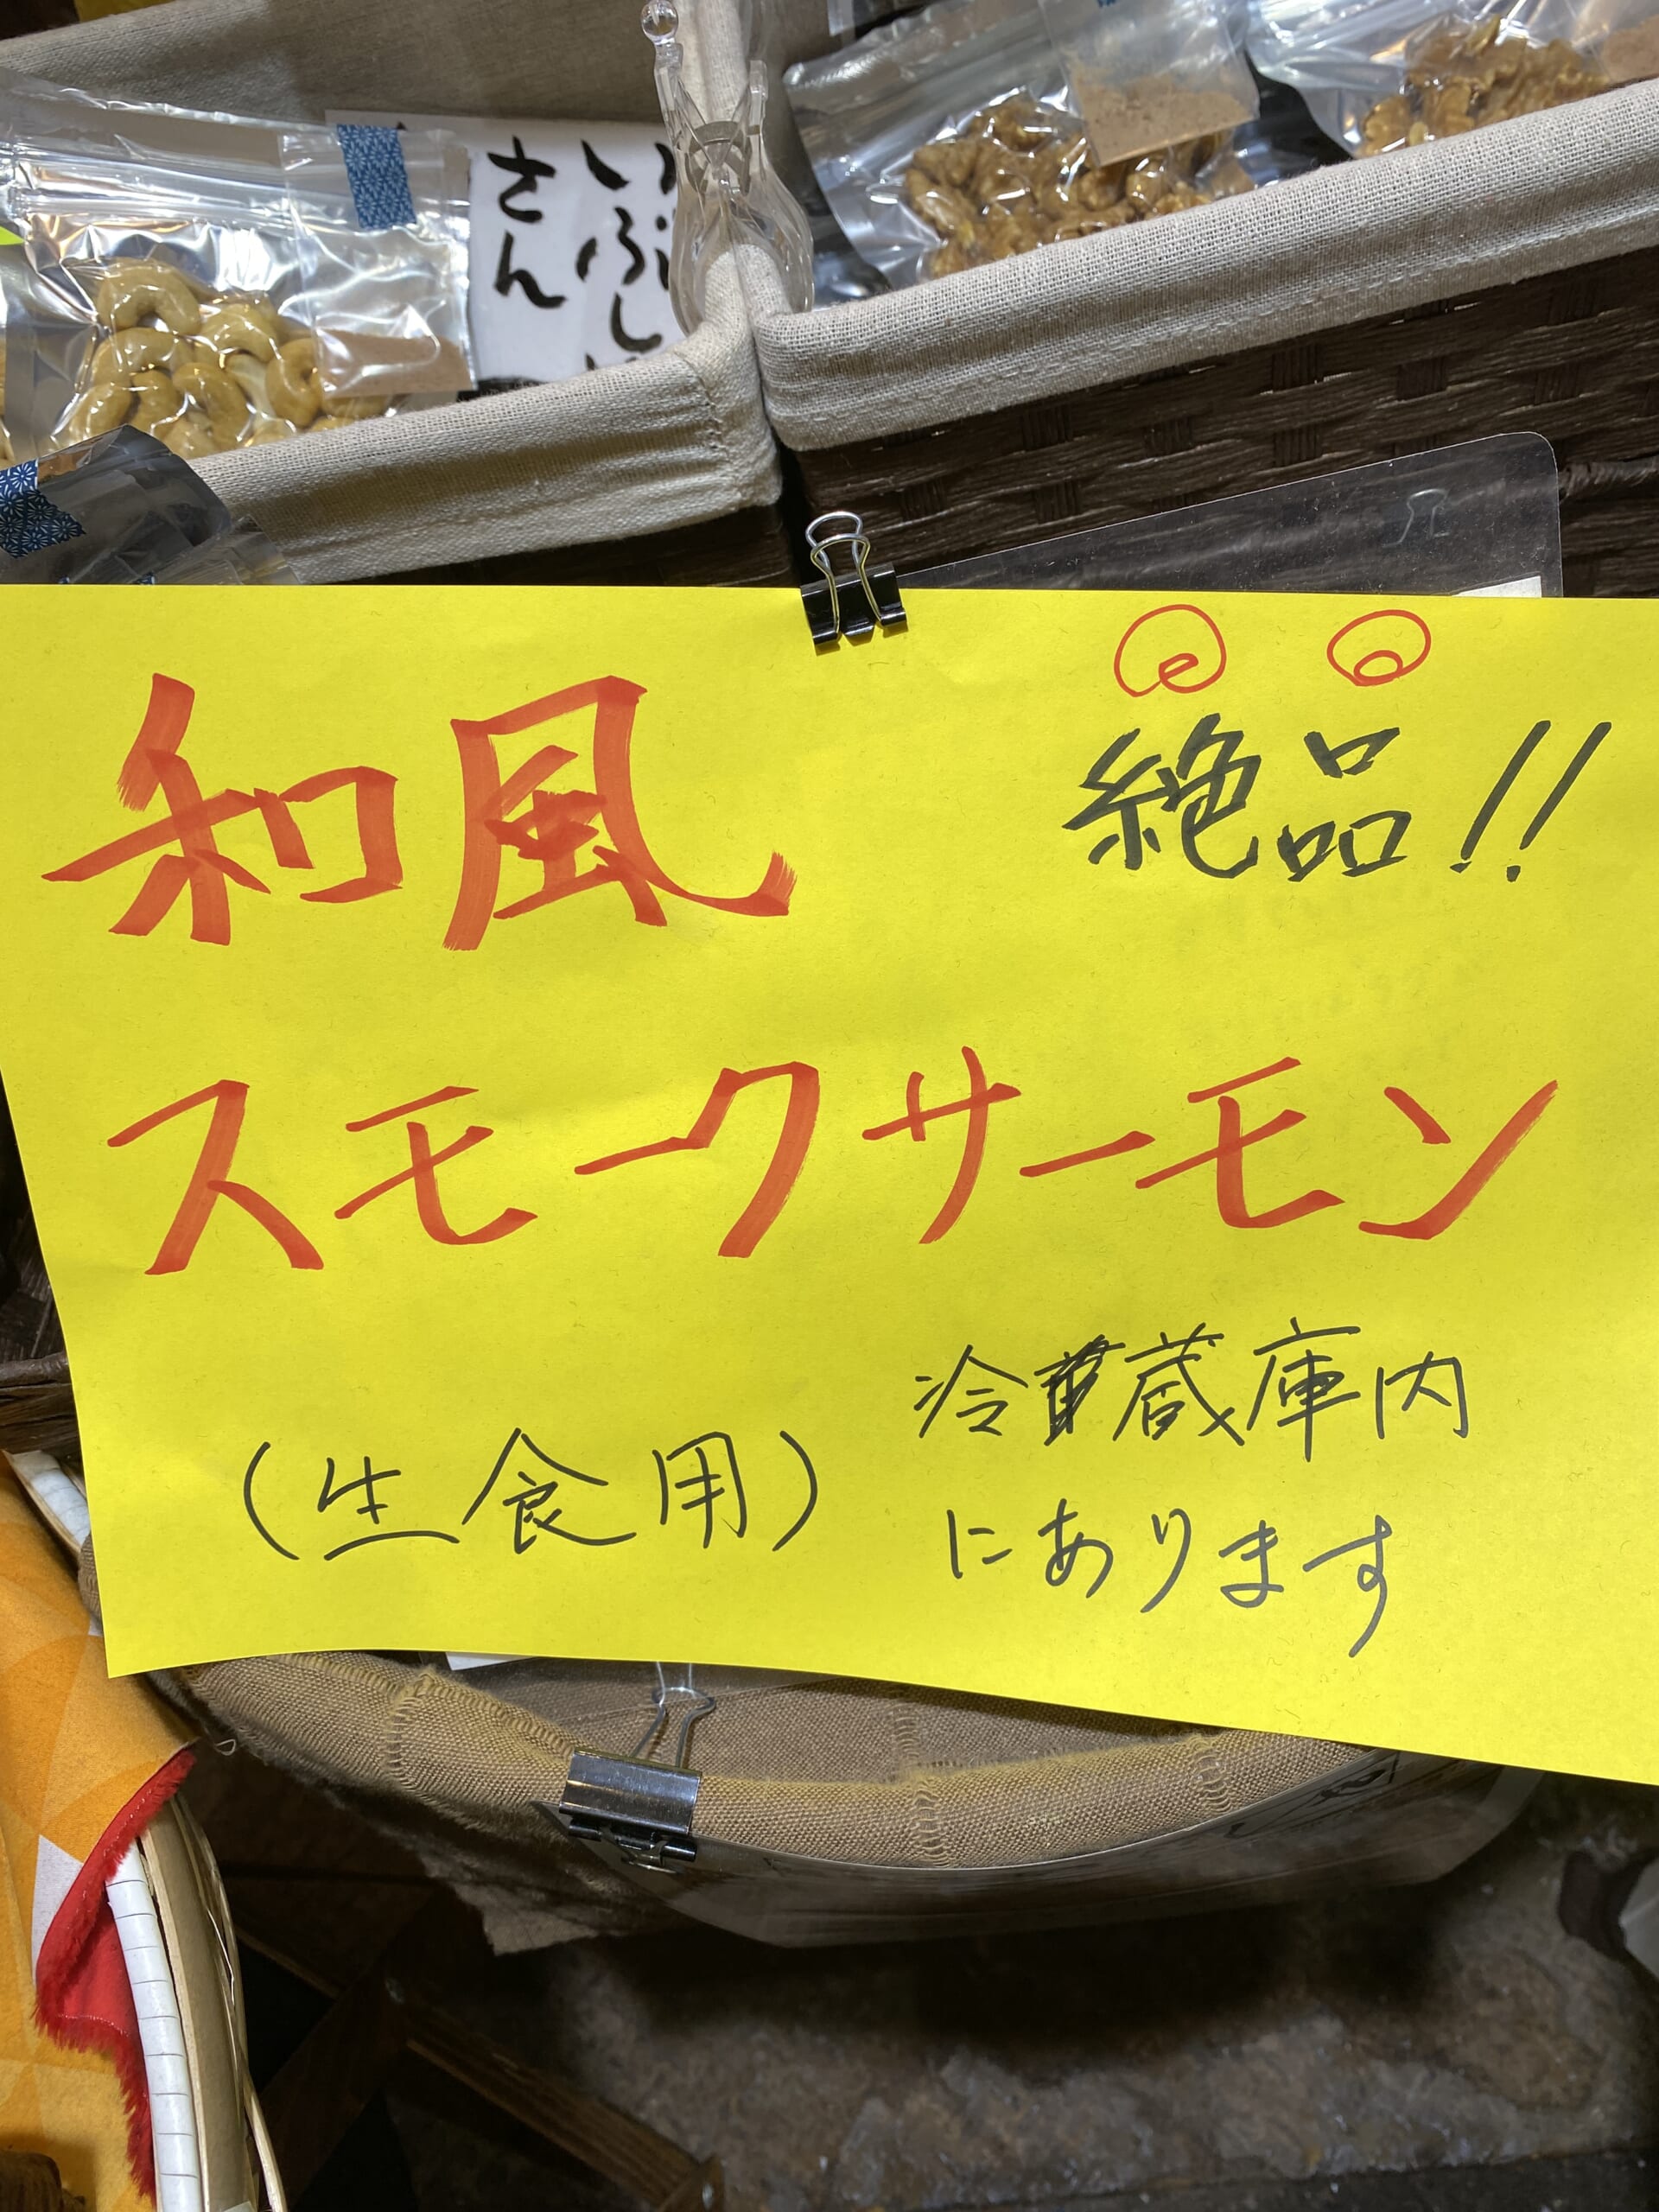 さん
和風
絶品!!
スモークサーモン
(生食用)
冷蔵庫内
にあります